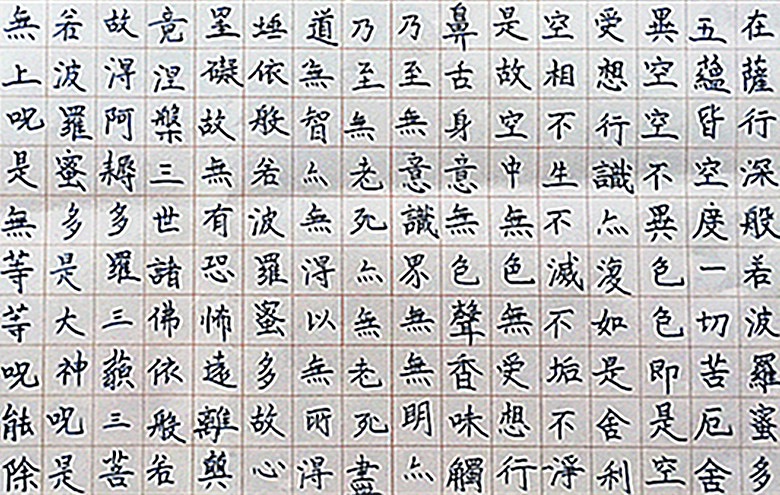 在薩行深般若波羅蜜多
五蘊皆空度一切苦厄舍
異空空不異色色即是空
受想行識亦復如是舍利
空相不生不滅不垢不淨
是故空中無色無受想行
鼻舌身意無色聲香味觸
乃至無意識界無無明亦
乃至無老死亦無老死盡
道無智亦無得以無所得
埵依般若波羅蜜多故心
罣礙故無有恐怖遠離
竟涅槃三世諸佛依般若
故得阿耨多羅三藐三菩
若波羅蜜多是大神呪是
無上呪是無等等呪能除